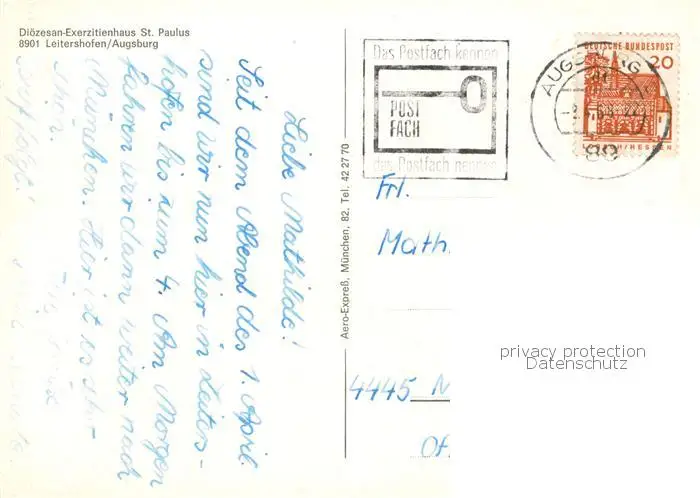 Diözesan-Exerzitienhaus St. Paulus
8901 Leitershofen/Augsburg
Liebe Mathilde!
Seit dem Abend des 1. April
sind wir nun hier in Leiters-
hofen bis zum 4. Am Morgen
fahren wir dann weiter nach
München. Hier ist es
schön.
Aero-Expreß, München, 82, Tel. 42 27 70
Das Postfach kennen
POST
FACH
das Postfach nennen
AUGSBURG
89
DEUTSCHE BUNDESPOST
20
HESSEN
Frl.
Math
4445 N
Of
privacy protection
Datenschutz